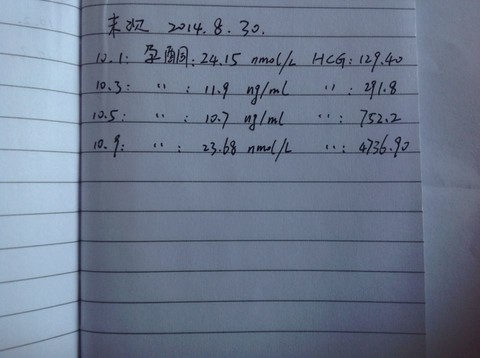 末次 2014.8.30.
10.1: 孕酮: 24.15 nmol/L HCG: 129.40
10.3: " : 11.9 ng/ml " : 291.8
10.5: " : 10.7 ng/ml " : 752.2
10.9: " : 23.68 nmol/L " : 4736.90